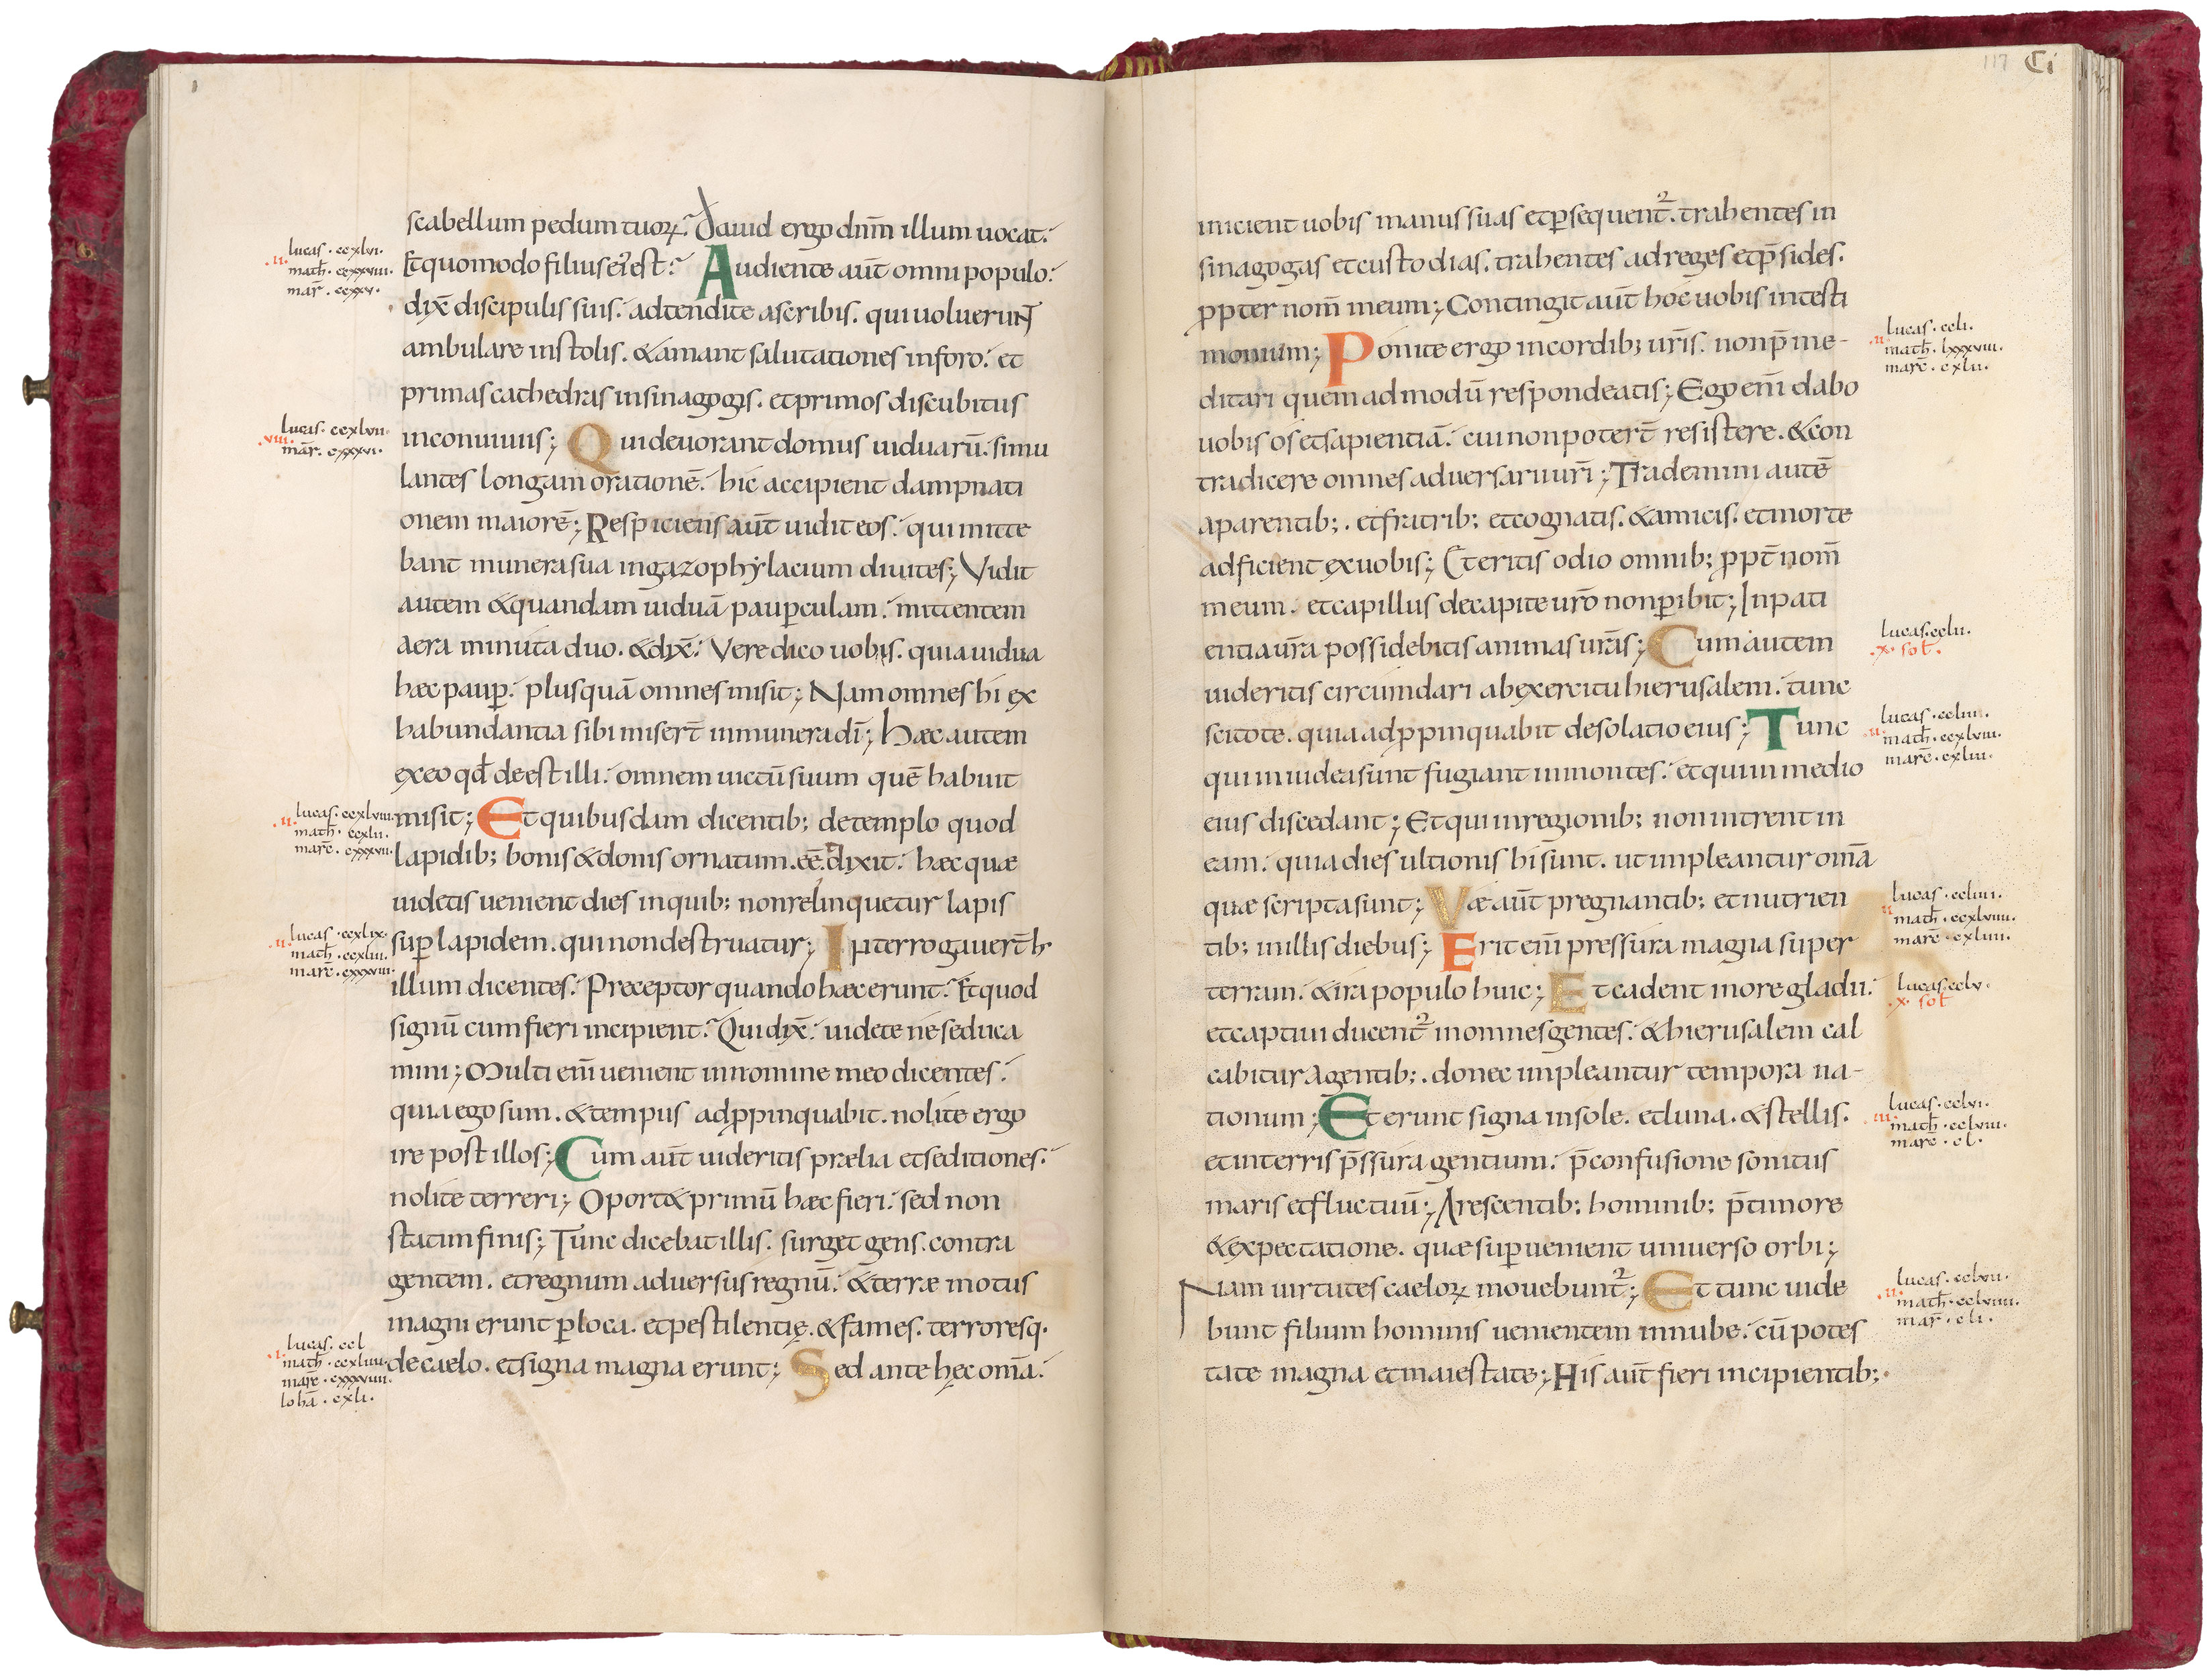 scabellum pedum tuoꝝ. Dauid ergo dnm̄ illum uocat.
lucas . ccxlvi.
.ii. math . ccxxviii.
mar̄ . ccxxv.
Et quomodo filius ei' est: Audiente aut̄ omni populo.
dix̄ discipulis suis. adtendite ascribis. qui uoluerunt
ambulare in stolis. & amant salutationes in foro. et
primas cathedras in sinagogis. et primos discubitus
lucas . ccxlvii.
.viii. mar̄ . cxxxvi.
in conuiuiis; Qui deuorant domus uiduarū. simu
lantes longam orationē. hic accipient dampnati
onem maiorē; Respiciens aut̄ uidit eos. qui mitte
bant munera sua in gazophylacium diuites; Vidit
autem & quandam uiduā paup̄culam. mittentem
aera minuta duo. & dix̄. Vere dico uobis. quia uidua
hæc paup̄. plus quā omnes misit; Nam omnes hi ex
habundantia sibi miser̄t in munera dī; Hæc autem
ex eo qd̄ deest illi. omnem uictū suum quē habuit
lucas . ccxlviii.
.ii. math . ccxlii.
marc̄ . cxxxvii.
misit; Et quibusdam dicentib; de templo quod
lapidib; bonis & donis ornatum. eē. dixit. hæc quæ
uidetis uenient dies in quib; non relinquetur lapis
lucas . ccxlix.
.ii. math . ccxliii.
marc̄ . cxxxviii.
sup̄ lapidem. qui non destruatur; Interrogauer̄t h
illum dicentes. Preceptor quando hæc erunt. Et quod
signū cum fieri incipient. Qui dix̄. uidete ne seduca
mini; Multi em̄ uenient in nomine meo dicentes.
quia ego sum. & tempus adp̄pinquabit. nolite ergo
ire post illos; Cum aut̄ uideritis prælia et seditiones.
nolite terreri; Oport& primū hæc fieri. sed non
statim finis; Tunc dicebat illis. surget gens. contra
gentem. et regnum aduersus regnū. & terræ motus
magni erunt p̄ loca. et pestilentię. & fames. terroresq.
lucas . ccl
.i. math . ccxliiii.
marc̄ . cxxxviiii.
Iohā . cxli.
de caelo. et signa magna erunt; Sed ante hęc omā.
117 Ci
inicient uobis manus suas et p̄sequent². trahentes in
sinagogas et custodias. trahentes ad reges et p̄sides.
p̄pter nom̄ meum; Contingit aut̄ hoc uobis in testi
monium; Ponite ergo in cordib; ur̄is. non p̄me-
lucas . ccli.
.ii. math . lxxxviii.
marc̄ . cxlii.
ditari quem ad modū respondeatis; Ego em̄ dabo
uobis os et sapientiā. cui non poter̄t resistere. & con
tradicere omnes aduersarii ur̄i; Trademini autē
aparentib;. et fratrib; et cognatis. & amicis. et morte
adficient ex uobis; Et eritis odio omnib; p̄pt̄ nom̄
meum. et capillus de capite ur̄o non p̄ibit; In pati
entia ur̄a possidebitis animas ur̄as; Cum autem
lucas . cclii.
.x. sol̄.
uideritis circumdari ab exercitu hierusalem. tunc
scitote. quia adp̄pinquabit desolatio eius; Tunc
lucas . ccliii.
.ii. math . ccxlviii.
marc̄ . cxliii.
qui in iudea sunt fugiant in montes. et qui in medio
eius discedant; Et qui in regionib; non intrent in
eam. quia dies ultionis hi sunt. ut impleantur omā
quæ scripta sunt; Væ aut̄ pregnantib; et nutrien
lucas . ccliiii.
.ii. math . ccxlviiii.
marc̄ . cxliiii.
tib; in illis diebus; Erit em̄ pressura magna super
terram. & ira populo huic; Et cadent in ore gladii.
lucas . cclv.
.x. sol̄
et captiui ducent² in omnes gentes. & hierusalem cal
cabitur a gentib;. donec impleantur tempora na-
tionum; Et erunt signa in sole. et luna. & stellis.
lucas . cclvi.
.iii. math . cclviii.
marc̄ . cl.
et in terris p̄ssura gentium. p̄ confusione sonitus
maris et fluctuū; Arescentib; hominib; p̄ timore
& expectatione. quæ sup̄uenient uniuerso orbi;
Nam uirtutes caeloꝝ mouebunt²; Et tunc uide
lucas . cclvii.
.ii. math . cclviiii.
mar̄ . cli.
bunt filium hominis uenientem in nube. cū potes
tate magna et maiestate; His aut̄ fieri incipientib;